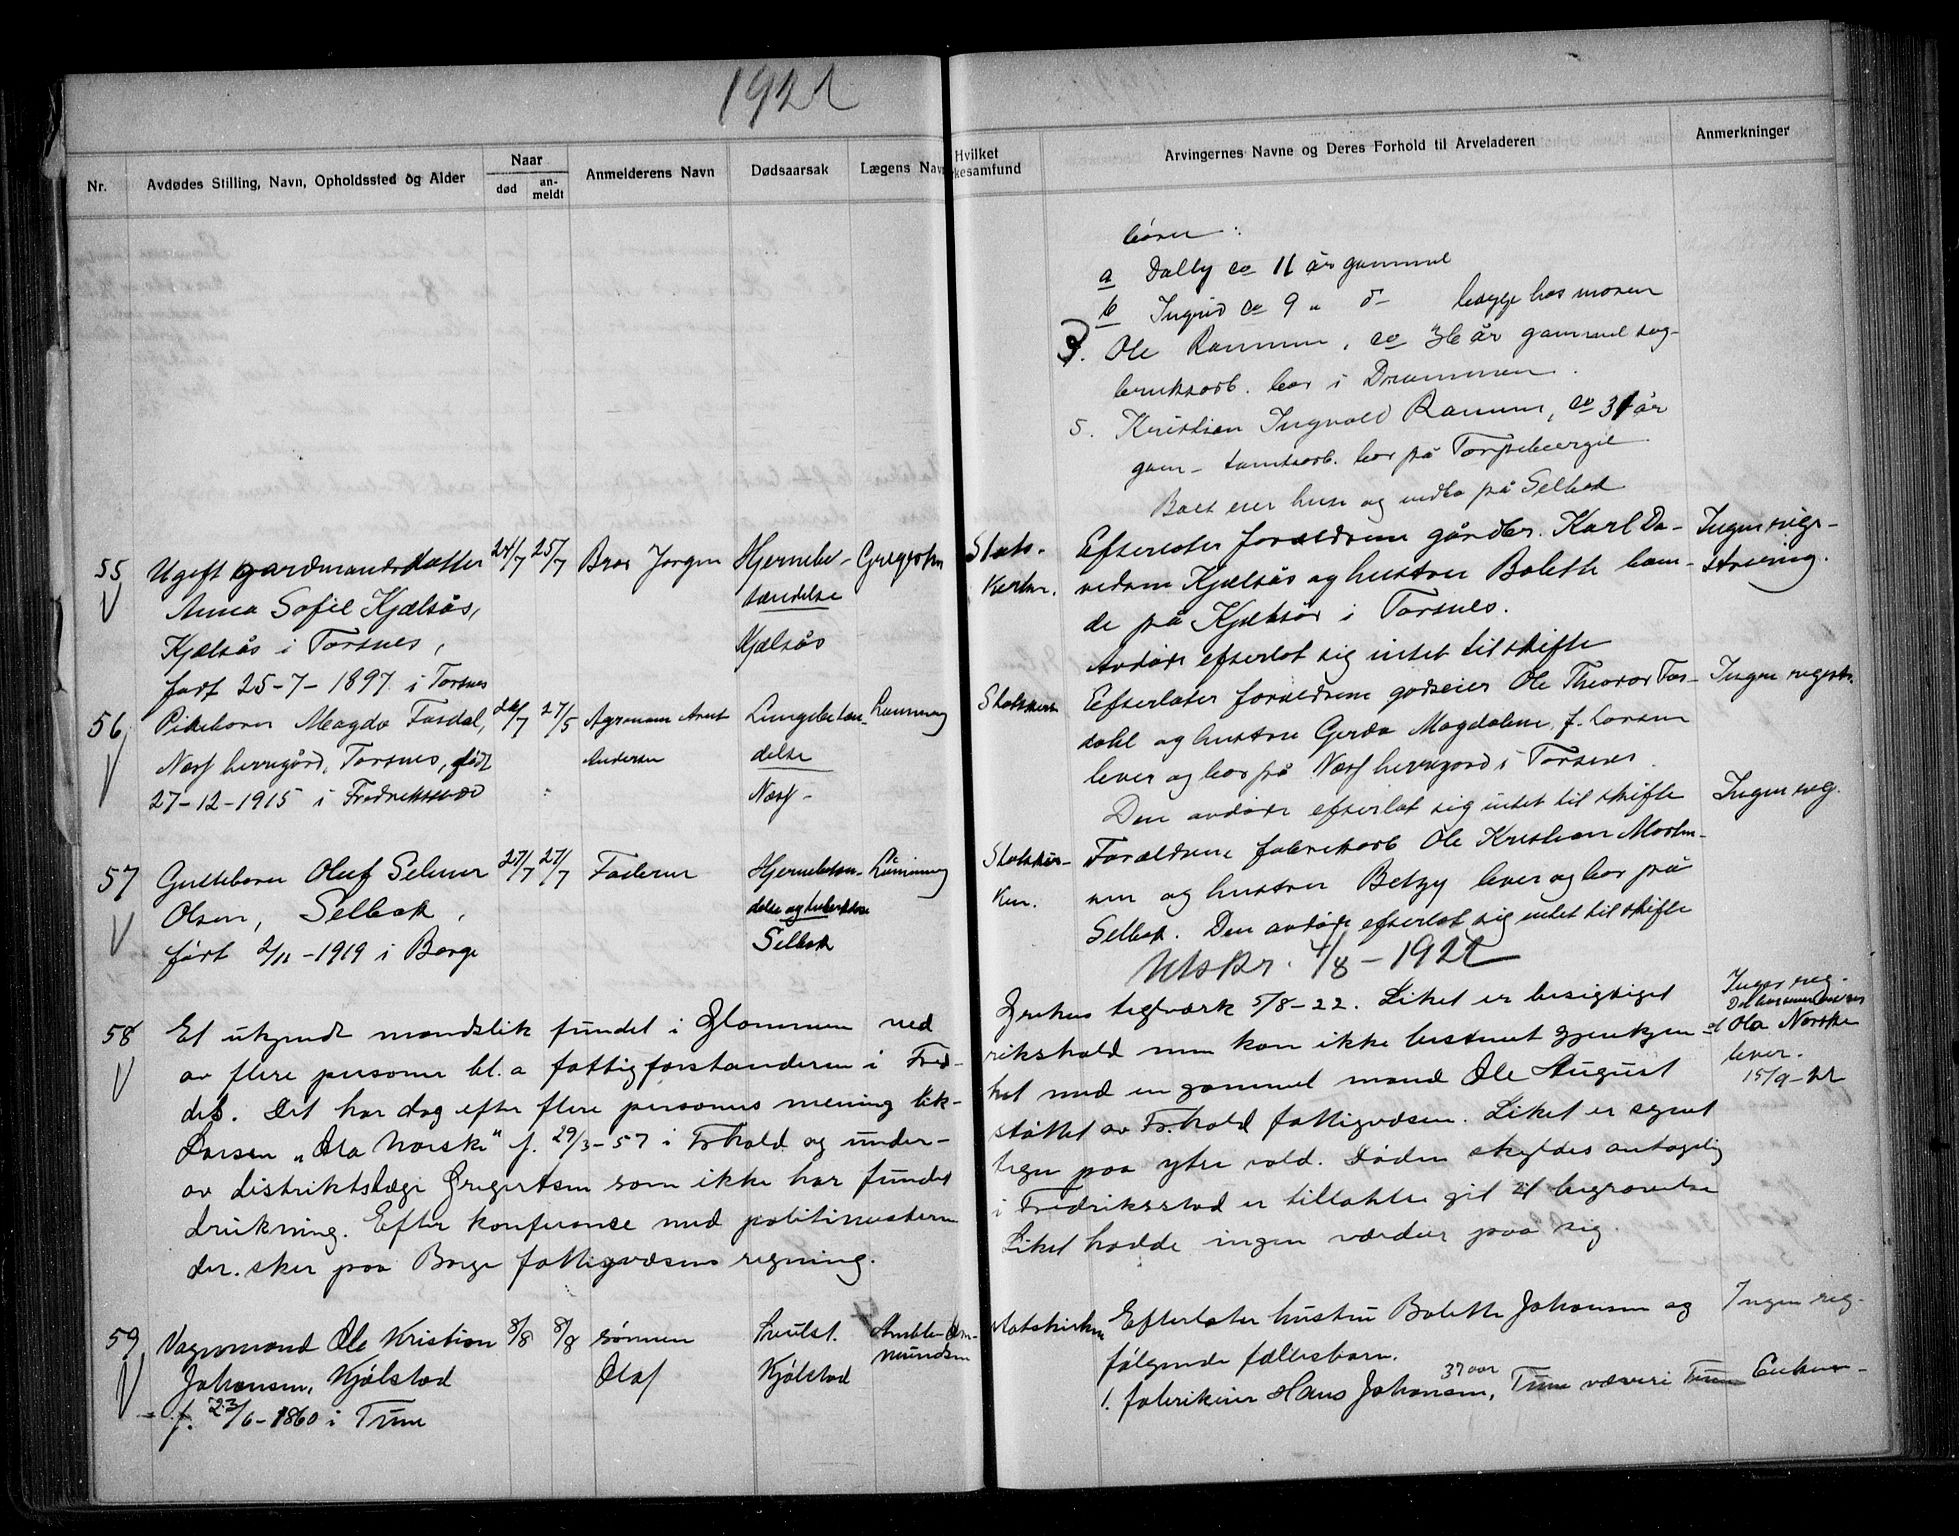 1922
Nr.
Avdødes Stilling, Navn, Opholdssted og Alder
Naar
død
an-
meldt
Anmelderens Navn
Dødsaarsak
Lægens Nav
Hvilket
kesamfund
Arvingernes Navne og Deres Forhold til Arveladeren
Anmerkninger
børn:
a Dally ca 11 år gammel
b Ingrid ca 9 " d- begge hos moren
3. Ole Rammen, ca 36 år gammel sag-
bruksarb. bor i Drammen.
5. Kristian Ingvald Rammen, ca 31 år
gam- tomtearb. bor på Torpebergie
Boet eier huse og indbo på Selbak
55
Ugift gardmandsdatter
Anna Sofie Kjælsås,
Kjælsås i Torsnes,
født 25-7-1897 i Torsnes
24/7 25/7
Bror Jørgen
Hjernebe-
tændelse
Kjælsås
Gregertsen
Stats-
kirken.
Efterlater forældrene gårdbr. Karl Da-
vidsen Kjælsås og hustru Bolette boen-
de på Kjælsås i Torsnes.
Avdøde efterlot sig intet til skifte
Ingen regi-
strering.
56
Pikebarn Magda Tosdal,
Næsf herregård, Torsnes, født
27-12-1915 i Fredriksstad
26/7 27/5
Agronom Arnt
Andersen
Lungebetæn-
delse
Næsf-
Rømming
Statskirk
Efterlater forældrene godseier Ole Theodor Tos-
dahl og hustru Gerda Magdalene f. Larsen
lever og bor på Næsf herregård i Torsnes.
Den avdøde efterlot sig intet til skifte
Ingen registr.
57
Guttebarn Oluf Selmer
Olsen, Selbak,
født 2/11-1919 i Borge
27/7 27/7
Faderen
Hjernebetæn-
delse og tuberkulose
Selbak
Rømming
Statskir-
ken.
Forældrene fabrikarb Ole Kristian Morten-
sen og hustru Betzy lever og bor på
Selbak. Den avdøde efterlot sig intet til skifte
Ingen reg.
Utskr. 4/8-1922
58
Et ukjendt mandslik fundet i Glommen ved
Grekers teglværk 5/8-22. Liket er besigtiget
av flere personer bl.a fattigforstanderen i Fred-
rikshald men kan ikke bestemt gjenkjen-
des. Det har dog efter flere personers mening lik-
het med en gammel mand Ole August
Larsen "Ola Norske" f. 29/3-57 i Frhald og under-
støttet av Fr.hald fattigvæsen. Liket er synet
av distriktslæge Gregertsen som ikke har fundet
tegn paa ytre vold. Døden skyldes antagelig
drukning. Efter konferanse med politimesteren
i Fredriksstad er tillatelse git til begravelse
der. sker paa Borge fattigvæsens regning.
Liket hadde ingen værdier paa sig
Ingen reg.
at Ola Norske
lever.
15/9-22
59
Vognmand Ole Kristian
Johansen, Kjølstad
f. 23/6-1860 i Tune
8/8 8/8
sønnen
Olaf
Svulst.
Kjølstad
Amble Os-
mundsen
statskirken
Efterlater hustru Bolette Johansen og
følgende fællesbarn.
1. fabrikeier Hans Johansen, 37 aar Tune væveri
Ingen reg.